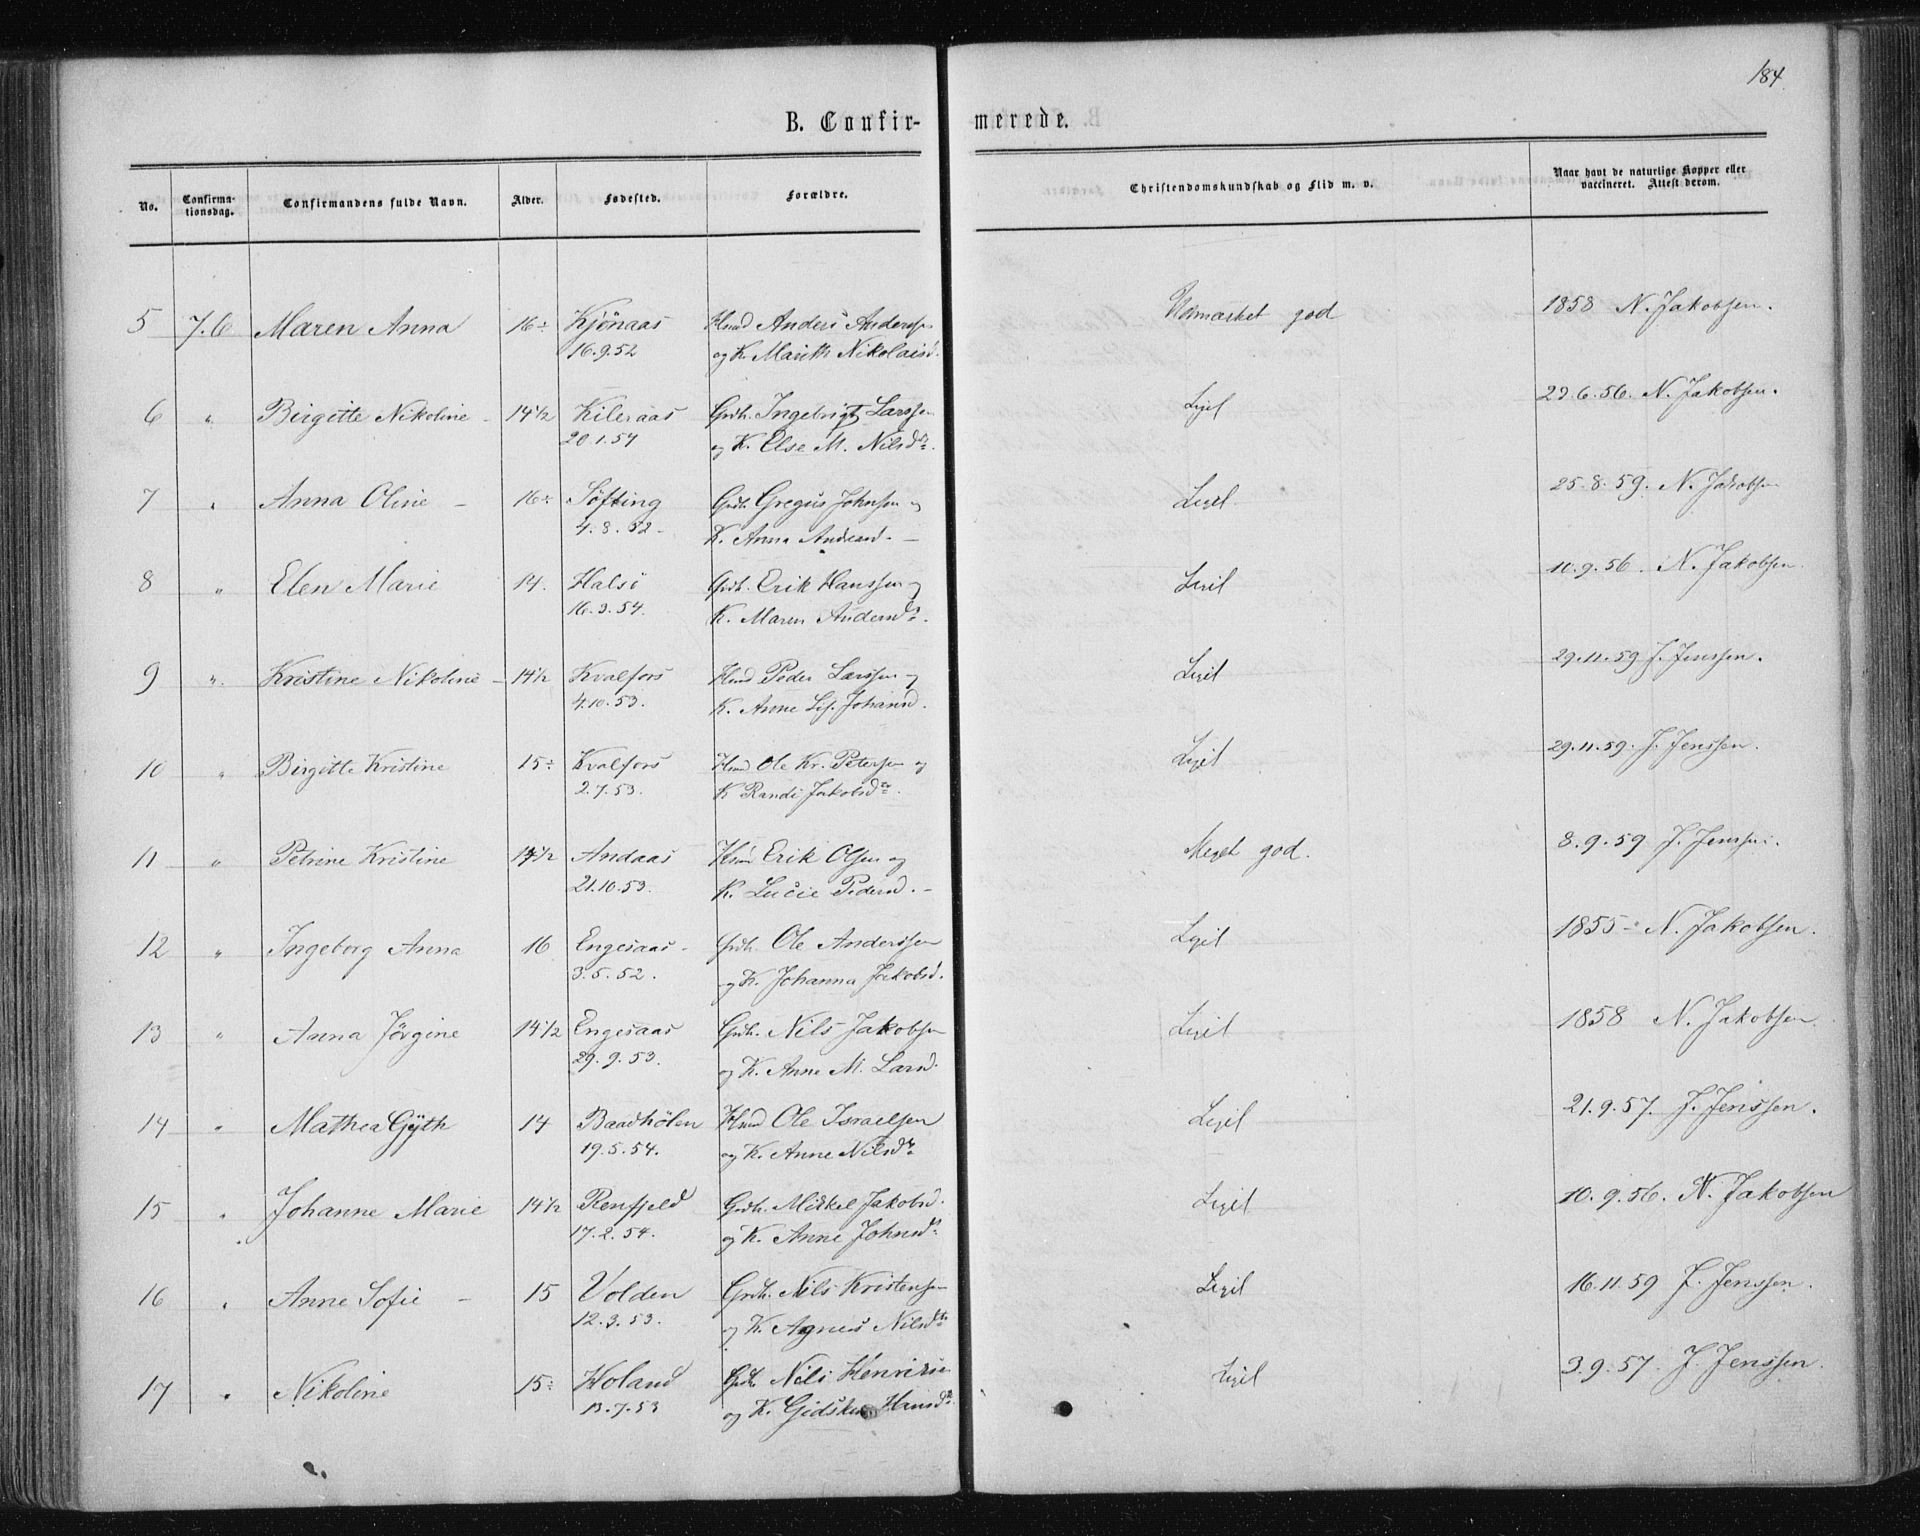 184
B. Confir- merede.
No. Confirma-tionsdag. Confirmandens fulde Navn. Alder. Fødested. Forældre. Christendomskundskab og Flid m. v. Naar havt de naturlige Kopper eller vaccineret. Attest derom.
5 7.6 Maren Anna 16 Kjönaas Hmd Anders Anders Udmærket god 1858 N. Jakobsen.
16.9.52 og K. Marith Nikolaisd.
6 " Birgitte Nikoline 14 1/2 Kileraas Grdr. Ingebrigt Larssen 6.56. N. Jakobsen.
20.1.54 og K. Else M. Nilsd
7 " Anna Oline 16 Söfting Grdr. Gregus Johnsen og 25.8.59. N. Jakobsen
4.8.52 K. Anna Andersd.
8 " Elen Marie 14. Halsö Grdr. Erik Hanssen og 10.9.56. N. Jakobsen.
16.3.54. K. Maren Andersd.
9 " Kristine Nikoline 14 1/2 Kvalfors Hmd Peder Larssen og 29.11.59 J. Jenssen.
4.10.53. K. Anne Johansd.
10 " Birgitte Kristine 15 Kvalfors Hmd Ole Kr. Petersen og 29.11.59. J. Jenssen.
2.7.53. K Randi Jakobsd.
11 " Petrine Kristine 14 1/2 Andaas Hmd Erik Olsen og Meget god. 8.9.59 J. Jenssen.
21.10.53. K. Lucie Pedersd.
12 " Ingeborg Anna 16 Engesaas Grdr. Ole Anderssen 1855 N. Jakobsen.
3.5.52. og K. Johanna Jakobsd.
13 " Anna Jörgine 14 1/2 Engesaas Grdr. Nils Jakobsen 1858 N. Jakobsen.
29.9.53. og K. Anne M. Larsd.
14 " Mathea Gÿth 14 Baadhölen Hmd Ole Israelsen 21.9.57. J. Jenssen.
19.5.54. og K. Anne Nilsd
15 " Johanne Marie 14 1/2 Renfjeld Grdr. Mikkel Jakobsd. 10.9.56. N. Jakobsen
17.2.54. og K. Anne Johnsd
16 " Anne Sofie 15 Volden Grdr. Nils Kristensen 16.11.59 J. Jenssen.
12.3.53. og K. Agnes Nilsd
17 " Nikoline 15 Holand Grdr Nils Henriksen 3.9.57. J. Jenssen.
13.7.53 og K. Gidsken Hansd